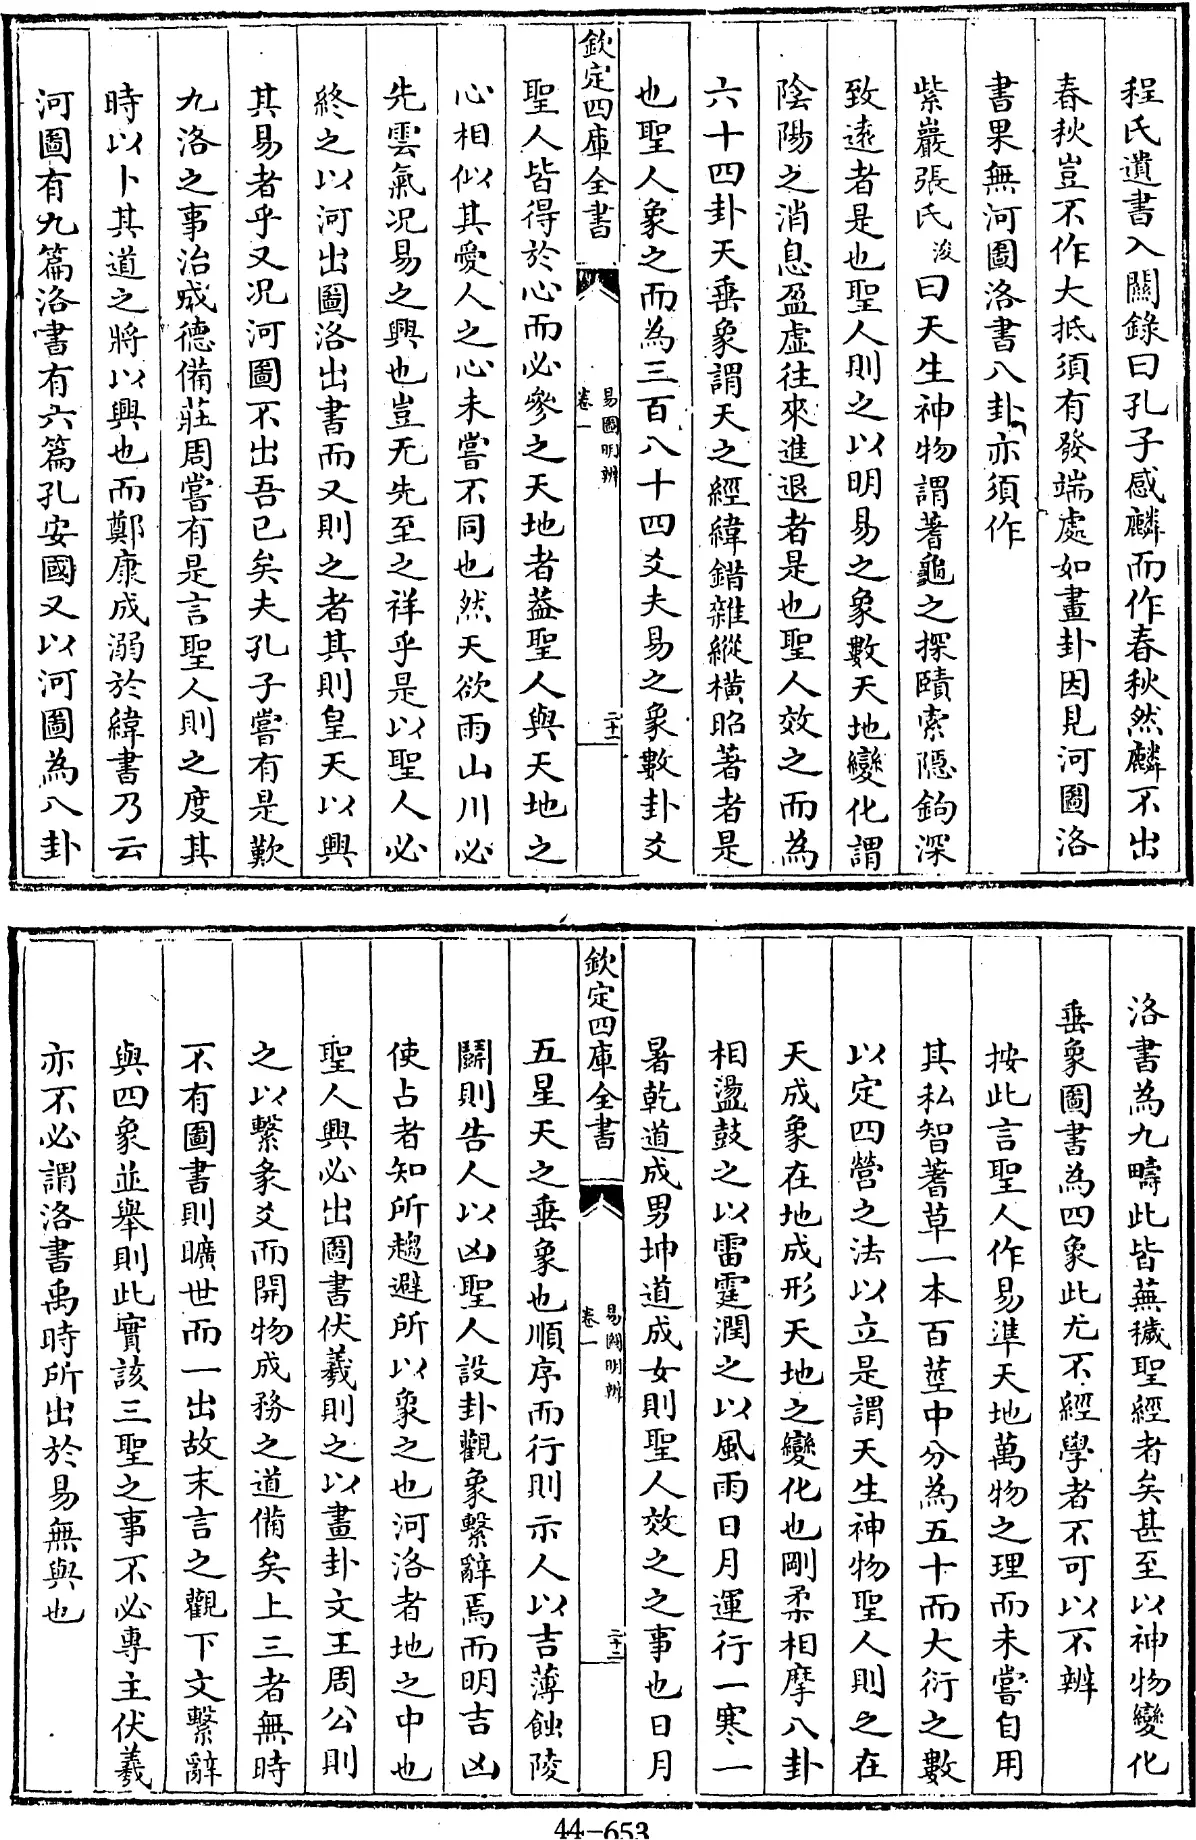 程氏遺書入關錄曰孔子感麟而作春秋然麟不出
春秋豈不作大抵須有發端處如畫卦因見河圖洛
書果無河圖洛書八卦亦須作
紫巖張氏浚曰天生神物謂蓍龜之探賾索隱鉤深
致遠者是也聖人則之以明易之象數天地變化謂
陰陽之消息盈虛往來進退者是也聖人效之而為
六十四卦天垂象謂天之經緯錯雜縱橫昭著者是
也聖人象之而為三百八十四爻夫易之象數卦爻
欽定四庫全書
易圖明辨
卷一
二十一
聖人皆得於心而必參之天地者葢聖人與天地之
心相似其愛人之心未嘗不同也然天欲雨山川必
先雲氣况易之興也豈无先至之祥乎是以聖人必
終之以河出圖洛出書而又則之者其則皇天以興
其易者乎又况河圖不出吾已矣夫孔子嘗有是歎
九洛之事治成德備莊周嘗有是言聖人則之度其
時以卜其道之將以興也而鄭康成溺於緯書乃云
河圖有九篇洛書有六篇孔安國又以河圖為八卦
洛書為九疇此皆蕪穢聖經者矣甚至以神物變化
垂象圖書為四象此尤不經學者不可以不辨
按此言聖人作易準天地萬物之理而未嘗自用
其私智蓍草一本百莖中分為五十而大衍之數
以定四營之法以立是謂天生神物聖人則之在
天成象在地成形天地之變化也剛柔相摩八卦
相盪鼓之以雷霆潤之以風雨日月運行一寒一
暑乾道成男坤道成女則聖人效之之事也日月
欽定四庫全書
易圖明辨
卷一
二十二
五星天之垂象也順序而行則示人以吉薄蝕陵
鬬則告人以凶聖人設卦觀象繫辭焉而明吉凶
使占者知所趨避所以象之也河洛者地之中也
聖人興必出圖書伏羲則之以畫卦文王周公則
之以繫彖爻而開物成務之道備矣上三者無時
不有圖書則曠世而一出故末言之觀下文繫辭
與四象並舉則此實該三聖之事不必專主伏羲
亦不必謂洛書禹時所出於易無與也
44-653